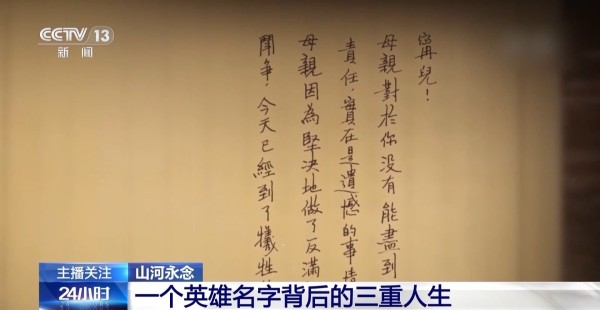 CCTV 13
新闻
甯兒！
母親對於你沒有能盡到
責任，實在是遺憾的事情
母親因為堅決地做了反滿
鬥爭，今天已經到了犧牲
主播关注
24小时
山河永念
一个英雄名字背后的三重人生